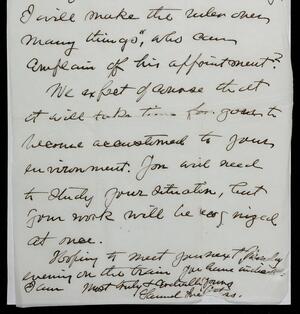 I will make thee ruler over
many things", who can
complain of his appointment?
We expect of course that
it will take time for you to
become accustomed to your
environment. You will need
to study your situation, but
your work will be recognized
at once.
Hoping to meet you next Monday
evening on the train you have
I am Most truly & cordially yours
Samuel